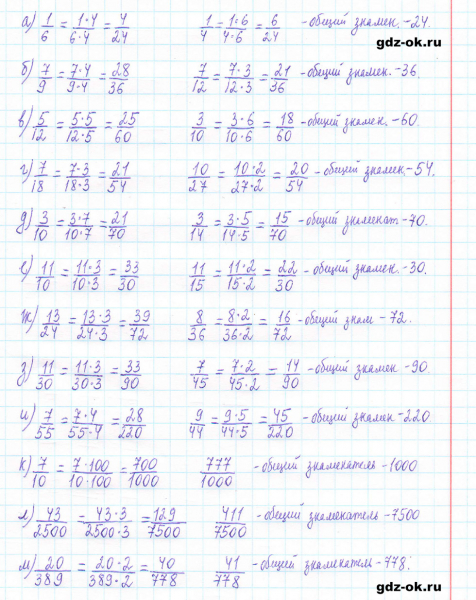 а) 1/6 = 1·4/6·4 = 4/24 1/4 = 1·6/4·6 = 6/24 - общий знамен. - 24.
gdz-ok.ru
б) 7/9 = 7·4/9·4 = 28/36 7/12 = 7·3/12·3 = 21/36 - общий знамен. - 36.
в) 5/12 = 5·5/12·5 = 25/60 3/10 = 3·6/10·6 = 18/60 - общий знамен. - 60.
г) 7/18 = 7·3/18·3 = 21/54 10/27 = 10·2/27·2 = 20/54 - общий знамен. - 54.
д) 3/10 = 3·7/10·7 = 21/70 3/14 = 3·5/14·5 = 15/70 - общий знаменат - 70.
е) 11/10 = 11·3/10·3 = 33/30 11/15 = 11·2/15·2 = 22/30 - общий знамен. - 30.
ж) 13/24 = 13·3/24·3 = 39/72 8/36 = 8·2/36·2 = 16/72 - общий знам - 72.
з) 11/30 = 11·3/30·3 = 33/90 7/45 = 7·2/45·2 = 14/90 - общий знамен - 90.
и) 7/55 = 7·4/55·4 = 28/220 9/44 = 9·5/44·5 = 45/220 - общий знамен - 220.
к) 7/10 = 7·100/10·100 = 700/1000 777/1000 - общий знаменатель - 1000
л) 43/2500 = 43·3/2500·3 = 129/7500 411/7500 - общий знаменатель - 7500
м) 20/389 = 20·2/389·2 = 40/778 41/778 - общий знаменатель - 778.
gdz-ok.ru